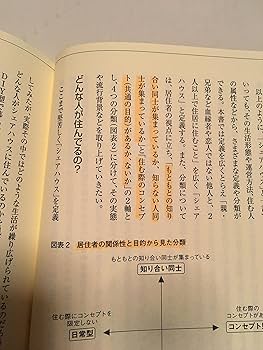 以上のように
いっても、その生活形態や運営方法、住む人
の属性などから、さまざまな定義や分類が
できる。本書では定義を広くとらえ「親・
兄弟など血縁者や恋人ではない他人と、2
人以上で住居に住むこと」を広く、「シェア
ハウス」と定義する。また、分類について
は、居住者の視点に立ち、「もともとの知り
合い同士が集まっているか、知らない人同
士が集まっているか」と「住む際のコンセプ
ト(共通の目的)があるか、ないか」の2軸と
し、4つの分類(図表2)に分けて、その実態
や流行背景などを取り上げていきたい。
どんな人が住んでるの?
ここまで堅苦しく「シェアハウス」を定義
してみたが、実際その中ではどのような生活
がシェアハウスに住んでいるのか
な暮らしが繰り広げられているの
DIY
図表2 居住者の関係性と目的から見た分類
もともとの知り合い同士が集まっている
知り合い同士
住む際にコンセプトを
限定しない
日常型
住む際の
コンセプトが
コンセプト